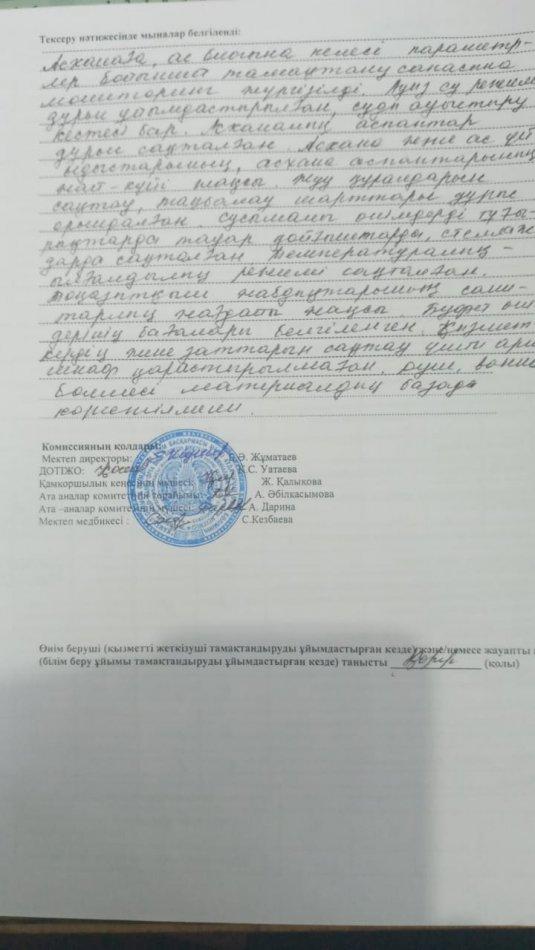 Тексеру нәтижесінде мыналар белгіленді:
Асханаға, ас блогына келесі параметр-
лер бойынша тамақтану сапасына
мониторинг жүргізілді. Ауыз су режимі
дұрыс ұйымдастырылған, суды ауыстыру
кестесі бар. Асханалық аспаптар
дұрыс сақталған. Асхана және ас үй
ыдыстарының, асхана аспаптарының
жай-күйі жақсы. Жуу құралдарын
сақтау, таңбалау шарттары дұрыс
орындалған. Сусымалы өнімдерді
тауар стеллаж
дарда сақталған. Температуралық -
ылғалдылық режимі сақталған.
Тоңазытқыш жабдықтарының сани-
тарлық жағдайы жақсы. Буфет өнім
дерінің бағалары белгіленген. Қызмет
кердің жеке заттарын сақтау үшін арн
шкаф қарастырылмаған, душ,
бөлмесі материалдық базада
көрсетілмеген.
Комиссияның қолдары:
Мектеп директоры: Ә. Жұматаев
ДОТІЖО: С. Уатаева
Қамкоршылык кеңесінің мүшесі: Ж. Қалыкова
Ата аналар комитетінің төрайымы: А. Әбілкасымова
Ата –аналар комитетінің мүшесі: А. Дарина
Мектеп медбикесі : С.Кезбаева
Өнім беруші (қызметті жеткізуші тамақтандыруды ұйымдастырған кезде) және/немесе жауапты
(білім беру ұйымы тамақтандыруды ұйымдастырған кезде) танысты (қолы)